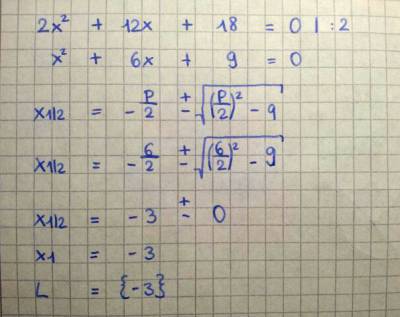 2x² + 12x + 18 = 0 | :2
x² + 6x + 9 = 0
x1/2 = - p/2 ± √((p/2)² - q)
x1/2 = - 6/2 ± √((6/2)² - 9)
x1/2 = - 3 ± 0
x1 = - 3
L = {-3}